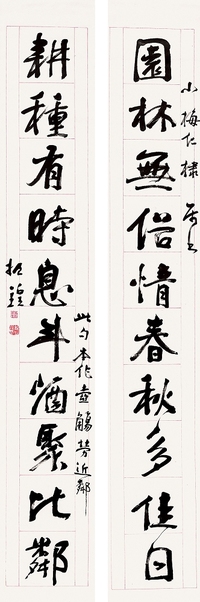 小梅仁棣屬
園林無俗情春秋多佳日
此句本作壺觴勞近鄰
耕種有時息斗酒聚比鄰
振鍠